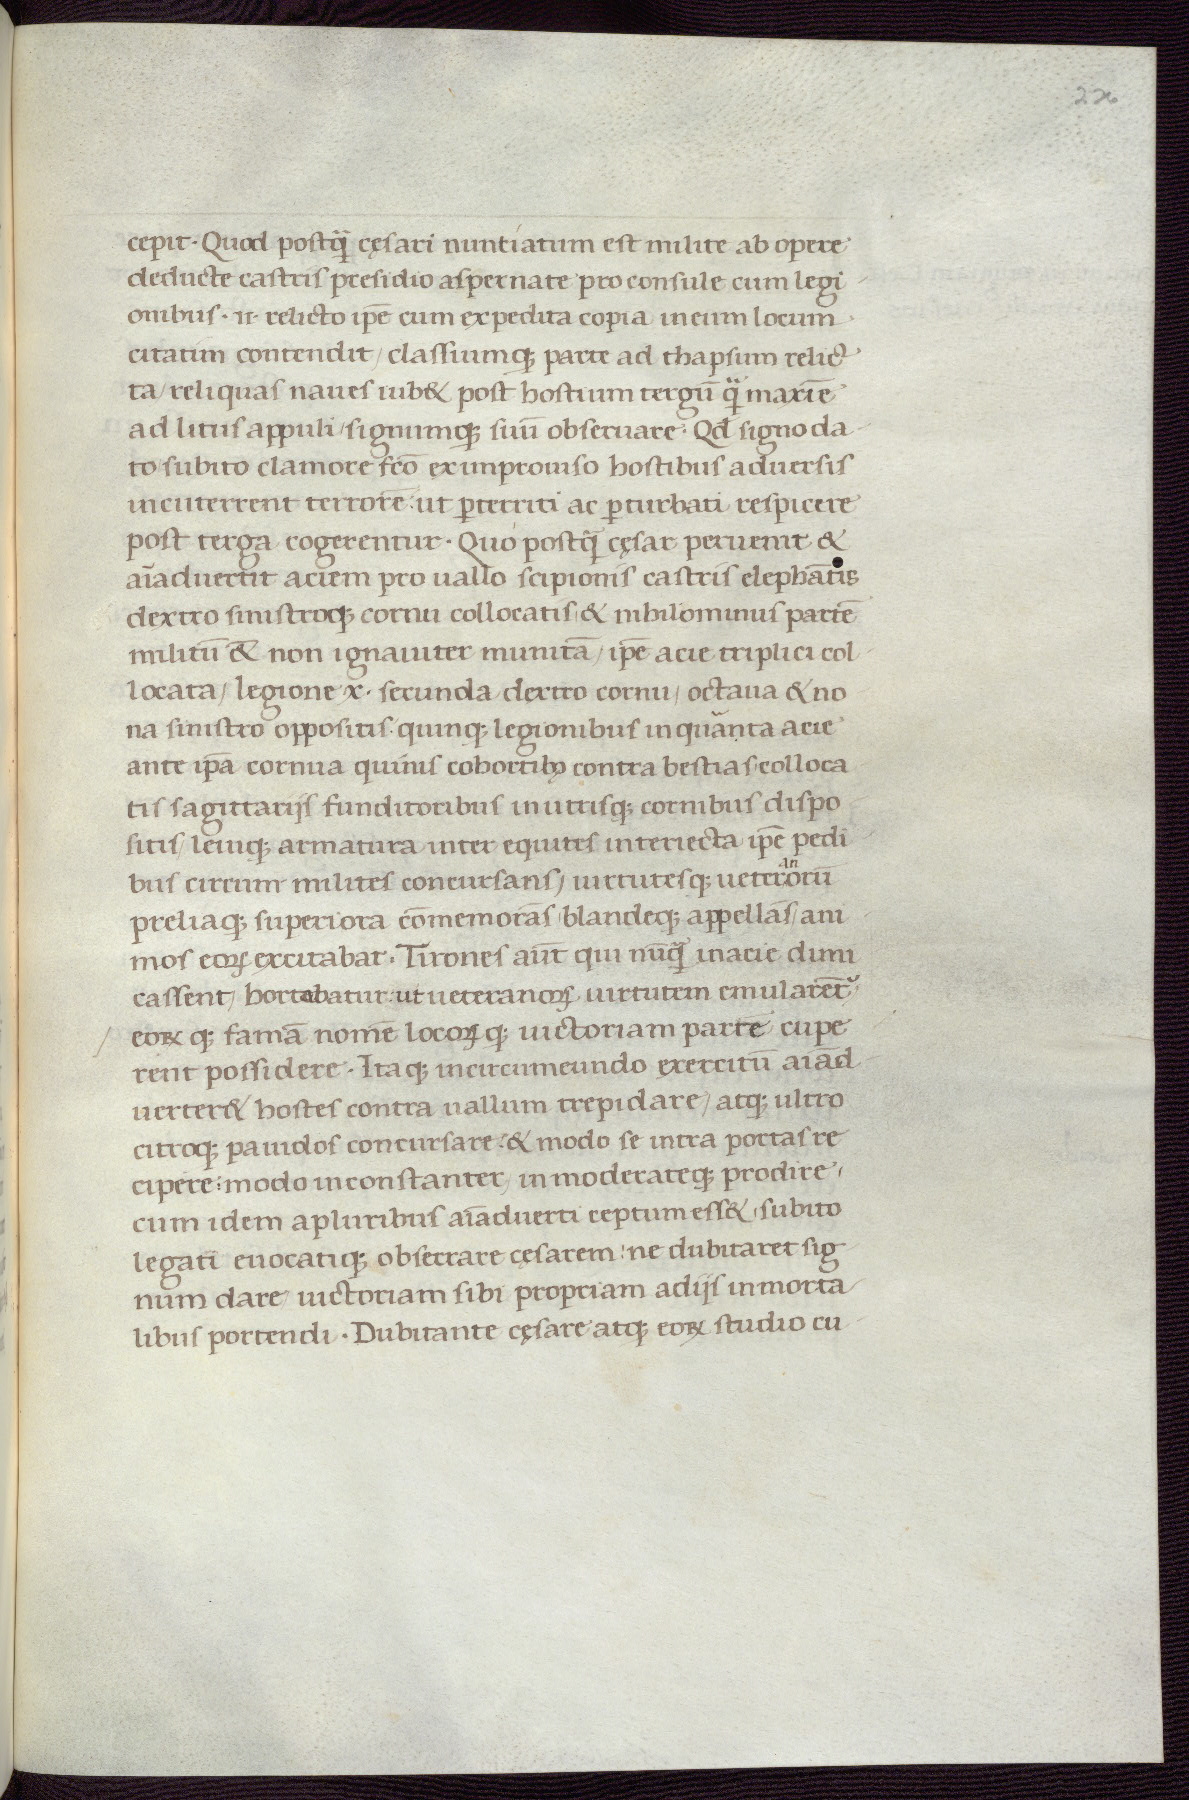 226
cepit · Quod postq̃ cęsari nuntiatum est milite ab opere
deducte castris presidio aspernate pro consule cum legi
onibus · II · relicto ip̄e cum expedita copia in eum locum
citatim contendit / classiumq; parte ad thapsum relic
ta / reliquas naues iub& post hostium tergū q̃ maxīe
ad litus appuli / signumq; suū obseruare · Qd̄ signo da
to subito clamore fc̄o ex improuiso hostibus aduersis
incuterrent terrorē : ut ꝑterriti ac ꝑturbati respicere
post terga cogerentur · Quo postq̃ cęsar peruenit &
aīaduertit aciem pro uallo scipionis castris elephātis
dextro sinistroq; cornu collocatis / & nihilominus partē
militū & non ignauiter munitā / ip̄e acie triplici col
locata / legione x · secunda dextro cornu / octaua & no
na sinistro oppositis · quinq; legionibus in quarta acie
ante ip̄a cornua quinis cohortibꝫ contra bestias colloca
tis sagittarijs funditoribus in utrisq; cornibus dispo
sitis / leuiq; armatura inter equites interiecta ip̄e pedi
bus circum milites concursans / uirtutesq; ueteranorū
preliaq; superiora cōmemorās / blandeq; appellās / ani
mos eoꝝ excitabat · Tirones aūt qui nūq̃ in acie dimi
cassent / hortabatur : ut ueteranoꝝ uirtutem emularent᷑
eoꝝ q; famā nomē locoꝝ q; uictoriam partē cupe
rent possidere · Itaq; in circumeundo exercitū aiād
uerter& hostes contra uallum trepidare / atq; ultro
citroq; pauidos concursare : & modo se intra portas re
cipere : modo inconstanter / inmoderateq; prodire ·
cum idem a pluribus aīaduerti ceptum ess& / subito
legati euocatiq; obsecrare cęsarem : ne dubitaret sig
num dare / uictoriam sibi propriam a dijs inmorta
libus portendi · Dubitante cęsare atq; eoꝝ studio cu